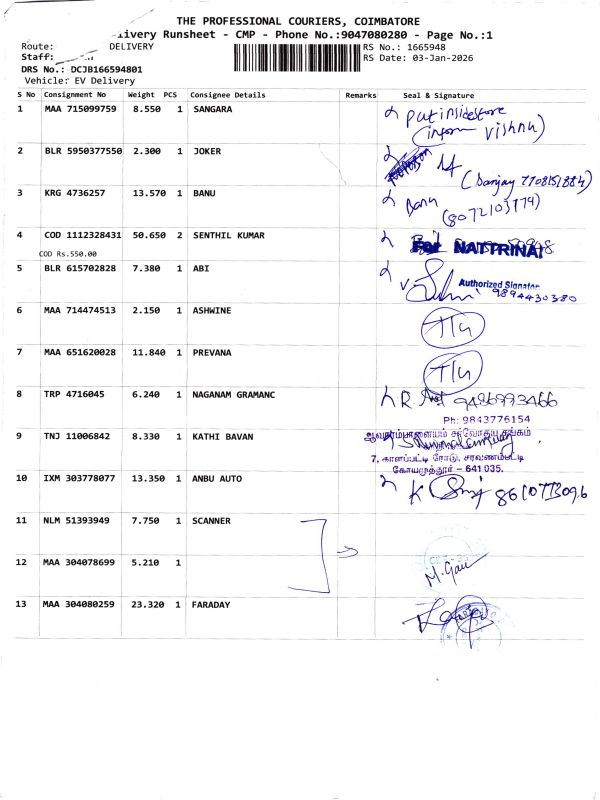 THE PROFESSIONAL COURIERS, COIMBATORE
livery Runsheet - CMP - Phone No.:9047080280 - Page No.:1
Route: DELIVERY
RS No.: 1665948
Staff:
RS Date: 03-Jan-2026
DRS No.: DCJB166594801
Vehicle: EV Delivery
S No Consignment No Weight PCS Consignee Details Remarks Seal & Signature
1 MAA 715099759 8.550 1 SANGARA put inside store
(inform Vishnu)
2 BLR 5950377550 2.300 1 JOKER
(Sanjay 7708151884)
3 KRG 4736257 13.570 1 BANU Banu
(8072103774)
4 COD 1112328431 50.650 2 SENTHIL KUMAR For NATTRINAI
COD Rs.550.00
5 BLR 615702828 7.380 1 ABI Authorized Signator
9894430380
6 MAA 714474513 2.150 1 ASHWINE
7 MAA 651620028 11.840 1 PREVANA
8 TRP 4716045 6.240 1 NAGANAM GRAMANC R 9486993466
Ph: 9843776154
9 TNJ 11006842 8.330 1 KATHI BAVAN ஆவாரம்பாளையம் சர்வோதய சங்கம்
7, காளப்பட்டி ரோடு, சரவணம்பட்டி
கோயமுத்தூர் – 641 035.
10 IXM 303778077 13.350 1 ANBU AUTO K
11 NLM 51393949 7.750 1 SCANNER
12 MAA 304078699 5.210 1 M. Gau
13 MAA 304080259 23.320 1 FARADAY